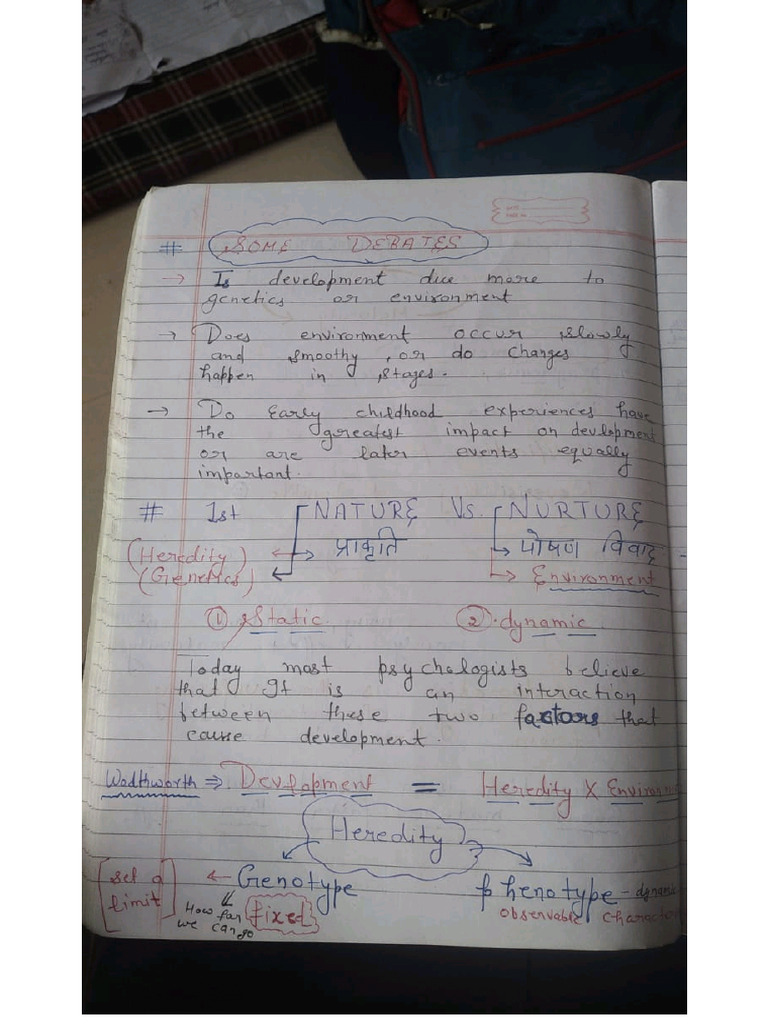 # SOME DEBATES
→ Is development due more to
genetics or environment
→ Does environment occur slowly
and smoothy, or do changes
happen in stages.
→ Do Early childhood experiences have
the greatest impact on development
or are later events equally
important.
# Ist NATURE Vs. NURTURE
(Heredity) प्राकृति पोषण विवाद
(Genetics) → Environment
① Static ② dynamic
Today most psychologists believe
that It is an interaction
between these two factors that
cause development.
Wodthworth ⇒ Development = Heredity X Environm
Heredity
[set a limit] ← Genotype phenotype - dynamic
How far we can go fixed observable character